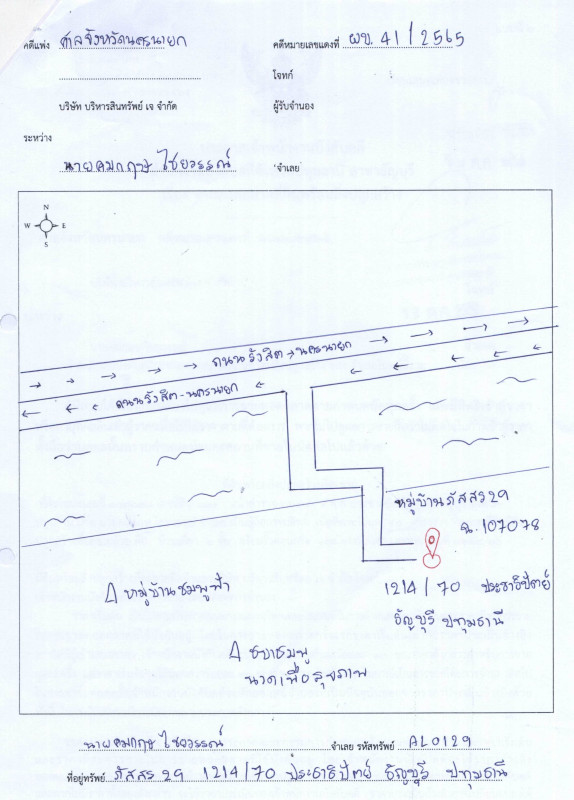 คดีแพ่ง ศาลจังหวัดนครนายก คดีหมายเลขแดงที่ ผบ. 41/2565
โจทก์
บริษัท บริหารสินทรัพย์ เจ จำกัด ผู้รับจำนอง
ระหว่าง
นายคมกฤษ ไชยวรรณ์ จำเลย
N
W E
S
ถนนรังสิต → นครนายก
ถนนรังสิต - นครนายก
หมู่บ้านภัสสร 29
ฉ. 107078
1214/70 ประชาธิปัตย์
ธัญบุรี ปทุมธานี
หมู่บ้านชมพูฟ้า
ชบาชมพู
นวดเพื่อสุขภาพ
นายคมกฤษ ไชยวรรณ์ จำเลย รหัสทรัพย์ AL0129
ที่อยู่ทรัพย์ ภัสสร 29 1214/70 ประชาธิปัตย์ ธัญบุรี ปทุมธานี